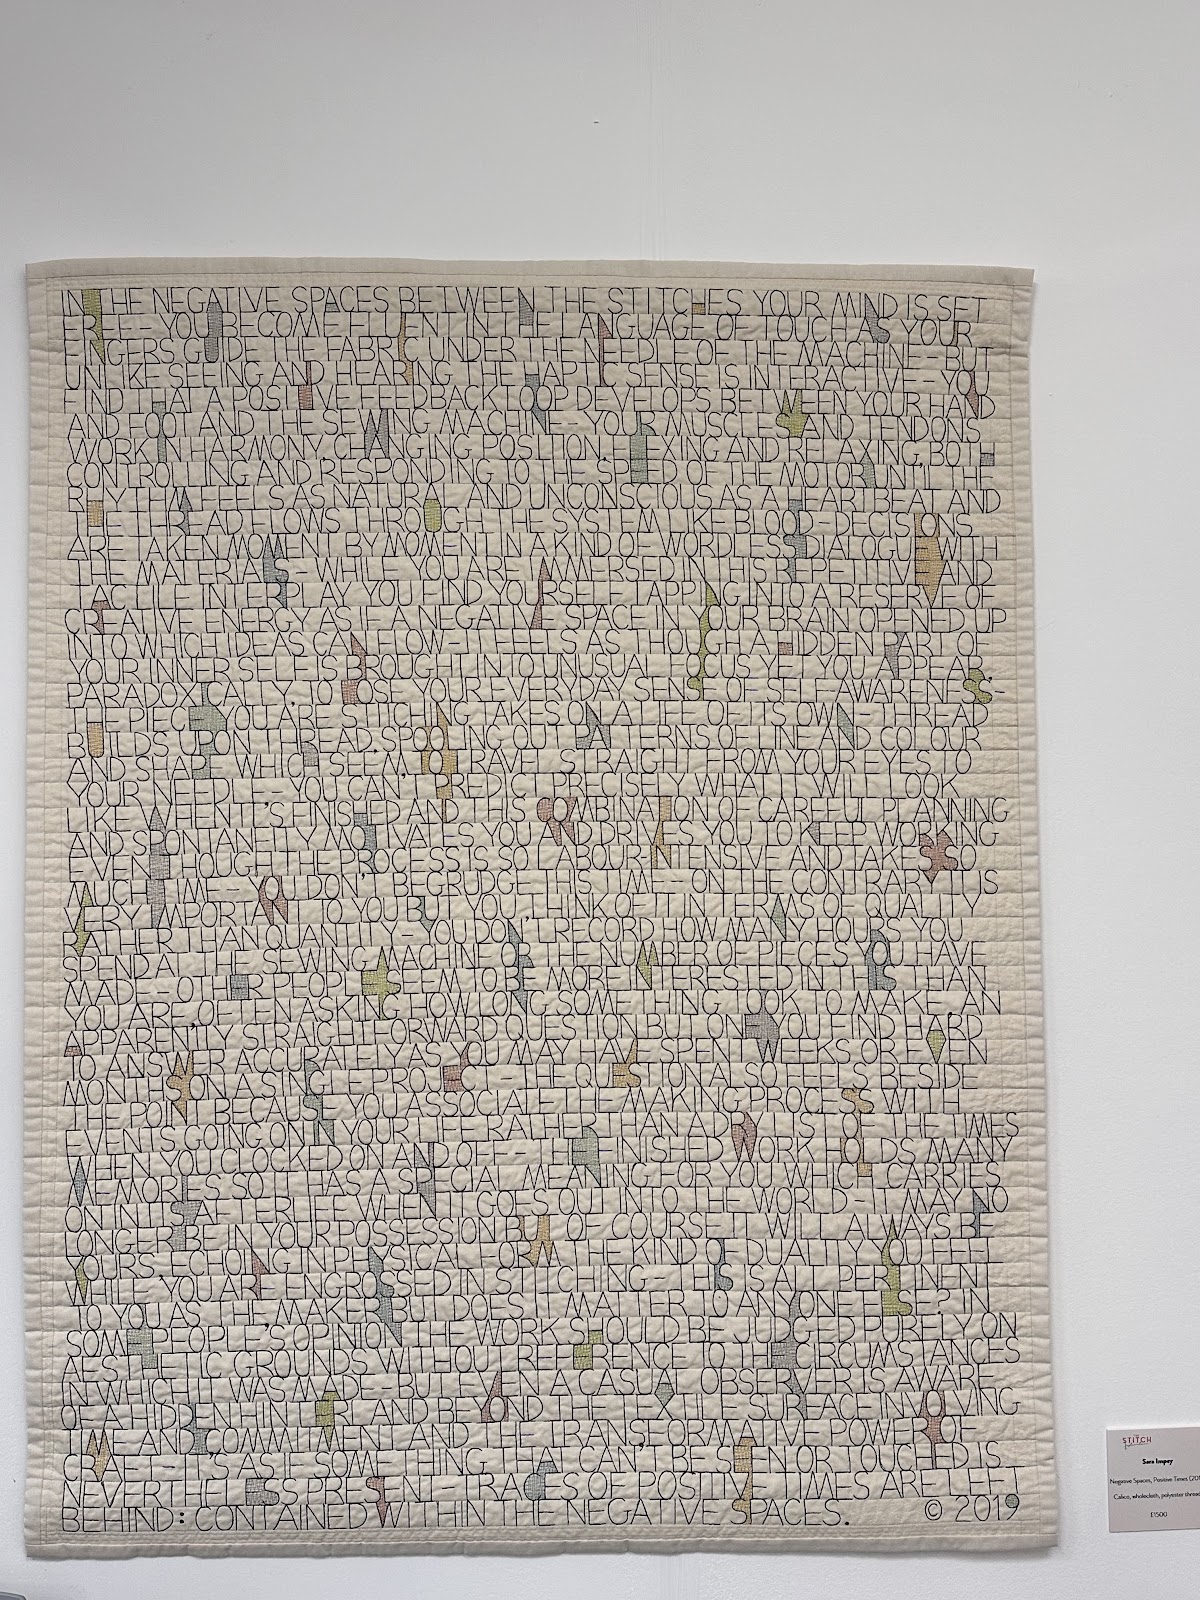 IN THE NEGATIVE SPACES BETWEEN THE STITCHES YOUR MIND IS SET
FREE – YOU BECOME FLUENT IN THE LANGUAGE OF TOUCH AS YOUR
FINGERS GUIDE THE FABRIC UNDER THE NEEDLE OF THE MACHINE – BUT
UNLIKE SEEING AND HEARING THE HAPTIC SENSE IS INTERACTIVE – YOU
FIND THAT A POSITIVE FEEDBACK LOOP DEVELOPS BETWEEN YOUR HAND
AND FOOT AND THE SEWING MACHINE – YOUR MUSCLES AND TENDONS
WORK IN HARMONY CHANGING POSITION, FLEXING AND RELAXING, BOTH
CONTROLLING AND RESPONDING TO THE SPEED OF THE MOTOR UNTIL THE
RHYTHM FEELS AS NATURAL AND UNCONSCIOUS AS A HEARTBEAT AND
THE THREAD FLOWS THROUGH THE SYSTEM LIKE BLOOD – DECISIONS
ARE TAKEN MOMENT BY MOMENT IN A KIND OF WORDLESS DIALOGUE WITH
THE MATERIALS – WHILE YOU ARE IMMERSED IN THIS REPETITIVE AND
TACTILE INTERPLAY YOU FIND YOURSELF TAPPING INTO A RESERVE OF
CREATIVE ENERGY AS IF A NEGATIVE SPACE IN YOUR BRAIN OPENED UP
INTO WHICH IDEAS CAN FLOW – IT FEELS AS THOUGH A HIDDEN PART OF
YOUR INNER SELF IS BROUGHT INTO UNUSUAL FOCUS YET YOU APPEAR,
PARADOXICALLY, TO LOSE YOUR EVERYDAY SENSE OF SELF-AWARENESS –
THE PIECE YOU ARE STITCHING TAKES ON A LIFE OF ITS OWN – THREAD
BUILDS UPON THREAD, SHOOTING OUT PATTERNS OF LINE AND COLOUR
AND SHAPE WHICH SEEM TO TRAVEL STRAIGHT FROM YOUR EYES TO
YOUR NEEDLE – YOU CAN'T PREDICT PRECISELY WHAT IT WILL LOOK
LIKE WHEN IT'S FINISHED AND THIS COMBINATION OF CAREFUL PLANNING
AND SPONTANEITY MOTIVATES YOU AND DRIVES YOU TO KEEP WORKING
EVEN THOUGH THE PROCESS IS SO LABOUR-INTENSIVE AND TAKES SO
MUCH TIME – YOU DON'T BEGRUDGE THIS TIME – ON THE CONTRARY IT IS
VERY IMPORTANT TO YOU BUT YOU THINK OF IT IN TERMS OF QUALITY
RATHER THAN QUANTITY – YOU DON'T RECORD HOW MANY HOURS YOU
SPEND AT THE SEWING MACHINE OR THE NUMBER OF PIECES YOU HAVE
MADE – OTHER PEOPLE SEEM TO BE MORE INTERESTED IN THIS THAN
YOU ARE, OFTEN ASKING HOW LONG SOMETHING TOOK TO MAKE, AN
APPARENTLY STRAIGHTFORWARD QUESTION BUT ONE YOU FIND HARD
TO ANSWER ACCURATELY AS YOU MAY HAVE SPENT WEEKS OR EVEN
MONTHS ON A SINGLE PROJECT – THE QUESTION ALSO FEELS BESIDE
THE POINT BECAUSE YOU ASSOCIATE THE MAKING PROCESS WITH
EVENTS GOING ON IN YOUR LIFE RATHER THAN A DRY LIST OF THE TIMES
WHEN YOU CLOCKED ON AND OFF – THE FINISHED WORK HOLDS MANY
MEMORIES SO IT HAS A SPECIAL MEANING FOR YOU WHICH CARRIES
ON IN ITS AFTERLIFE WHEN IT GOES OUT INTO THE WORLD – IT MAY NO
LONGER BE IN YOUR POSSESSION BUT OF COURSE IT WILL ALWAYS BE
YOURS, ECHOING IN PHYSICAL FORM THE KIND OF DUALITY YOU FELT
WHILE YOU ARE ENGROSSED IN STITCHING – THIS IS ALL PERTINENT
TO YOU AS THE MAKER BUT DOES IT MATTER TO ANYONE ELSE? IN
SOME PEOPLE'S OPINION THE WORK SHOULD BE JUDGED PURELY ON
AESTHETIC GROUNDS WITHOUT REFERENCE TO THE CIRCUMSTANCES
IN WHICH IT WAS MADE – BUT EVEN A CASUAL OBSERVER IS AWARE
OF A HIDDEN HINTERLAND BEYOND THE TEXTILE SURFACE INVOLVING
TIME AND COMMITMENT AND THE TRANSFORMATIVE POWER OF
CRAFT – IT'S AS IF SOMETHING THAT CAN'T BE SEEN OR TOUCHED IS
NEVERTHELESS PRESENT – TRACES OF POSITIVE TIMES ARE LEFT
BEHIND: CONTAINED WITHIN THE NEGATIVE SPACES. © 2019
STITCH
Sara Impey
Negative Spaces, Positive Times (201
Calico, wholecloth, polyester thread
£1500